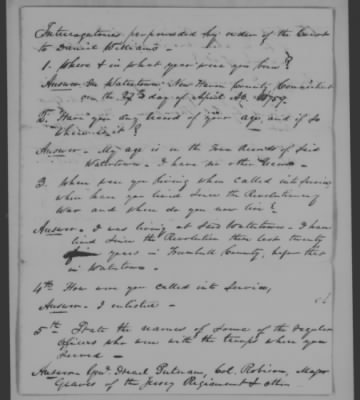 Interrogatories propounded by order of the Court
to Daniel Williams -
1. Where & in what year were you born?
Answer In Watertown New Haven County, Connecticut
on the 27th day of April AD. 1759.
2. Have you any record of your age, and if so
where is it?
Answer - My age is on the Town Records of said
Watertown - I have no other Record -
3. Where were you living when called into service,
where have you lived since the Revolutionary
War and where do you now live?
Answer - I was living at said Watertown - I have
lived since the Revolution these last twenty
years in Trumbull County, before that
in Watertown -
4th How were you called into service,
Answer - I enlisted -
5th State the names of some of the regular
officers who were with the troops where you
served -
Answer Genl. Israel Putnam, Col. Robinson, Major
Graves of the Jersey Regiment & others